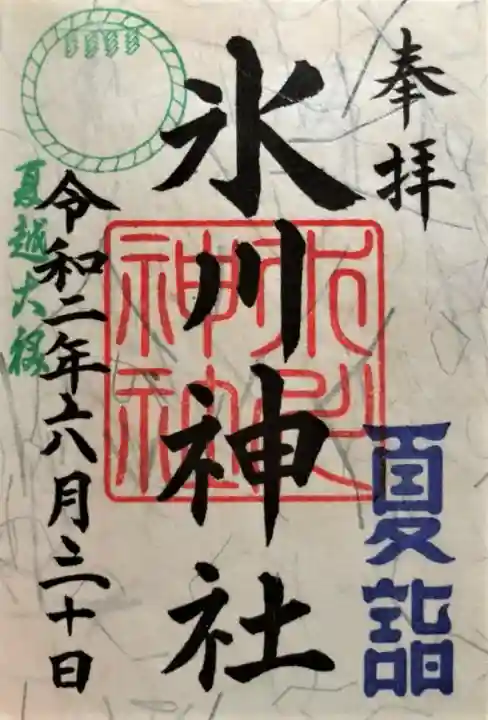 奉拝
夏詣
氷川神社
氷川神社
令和二年六月三十日
夏越大祓